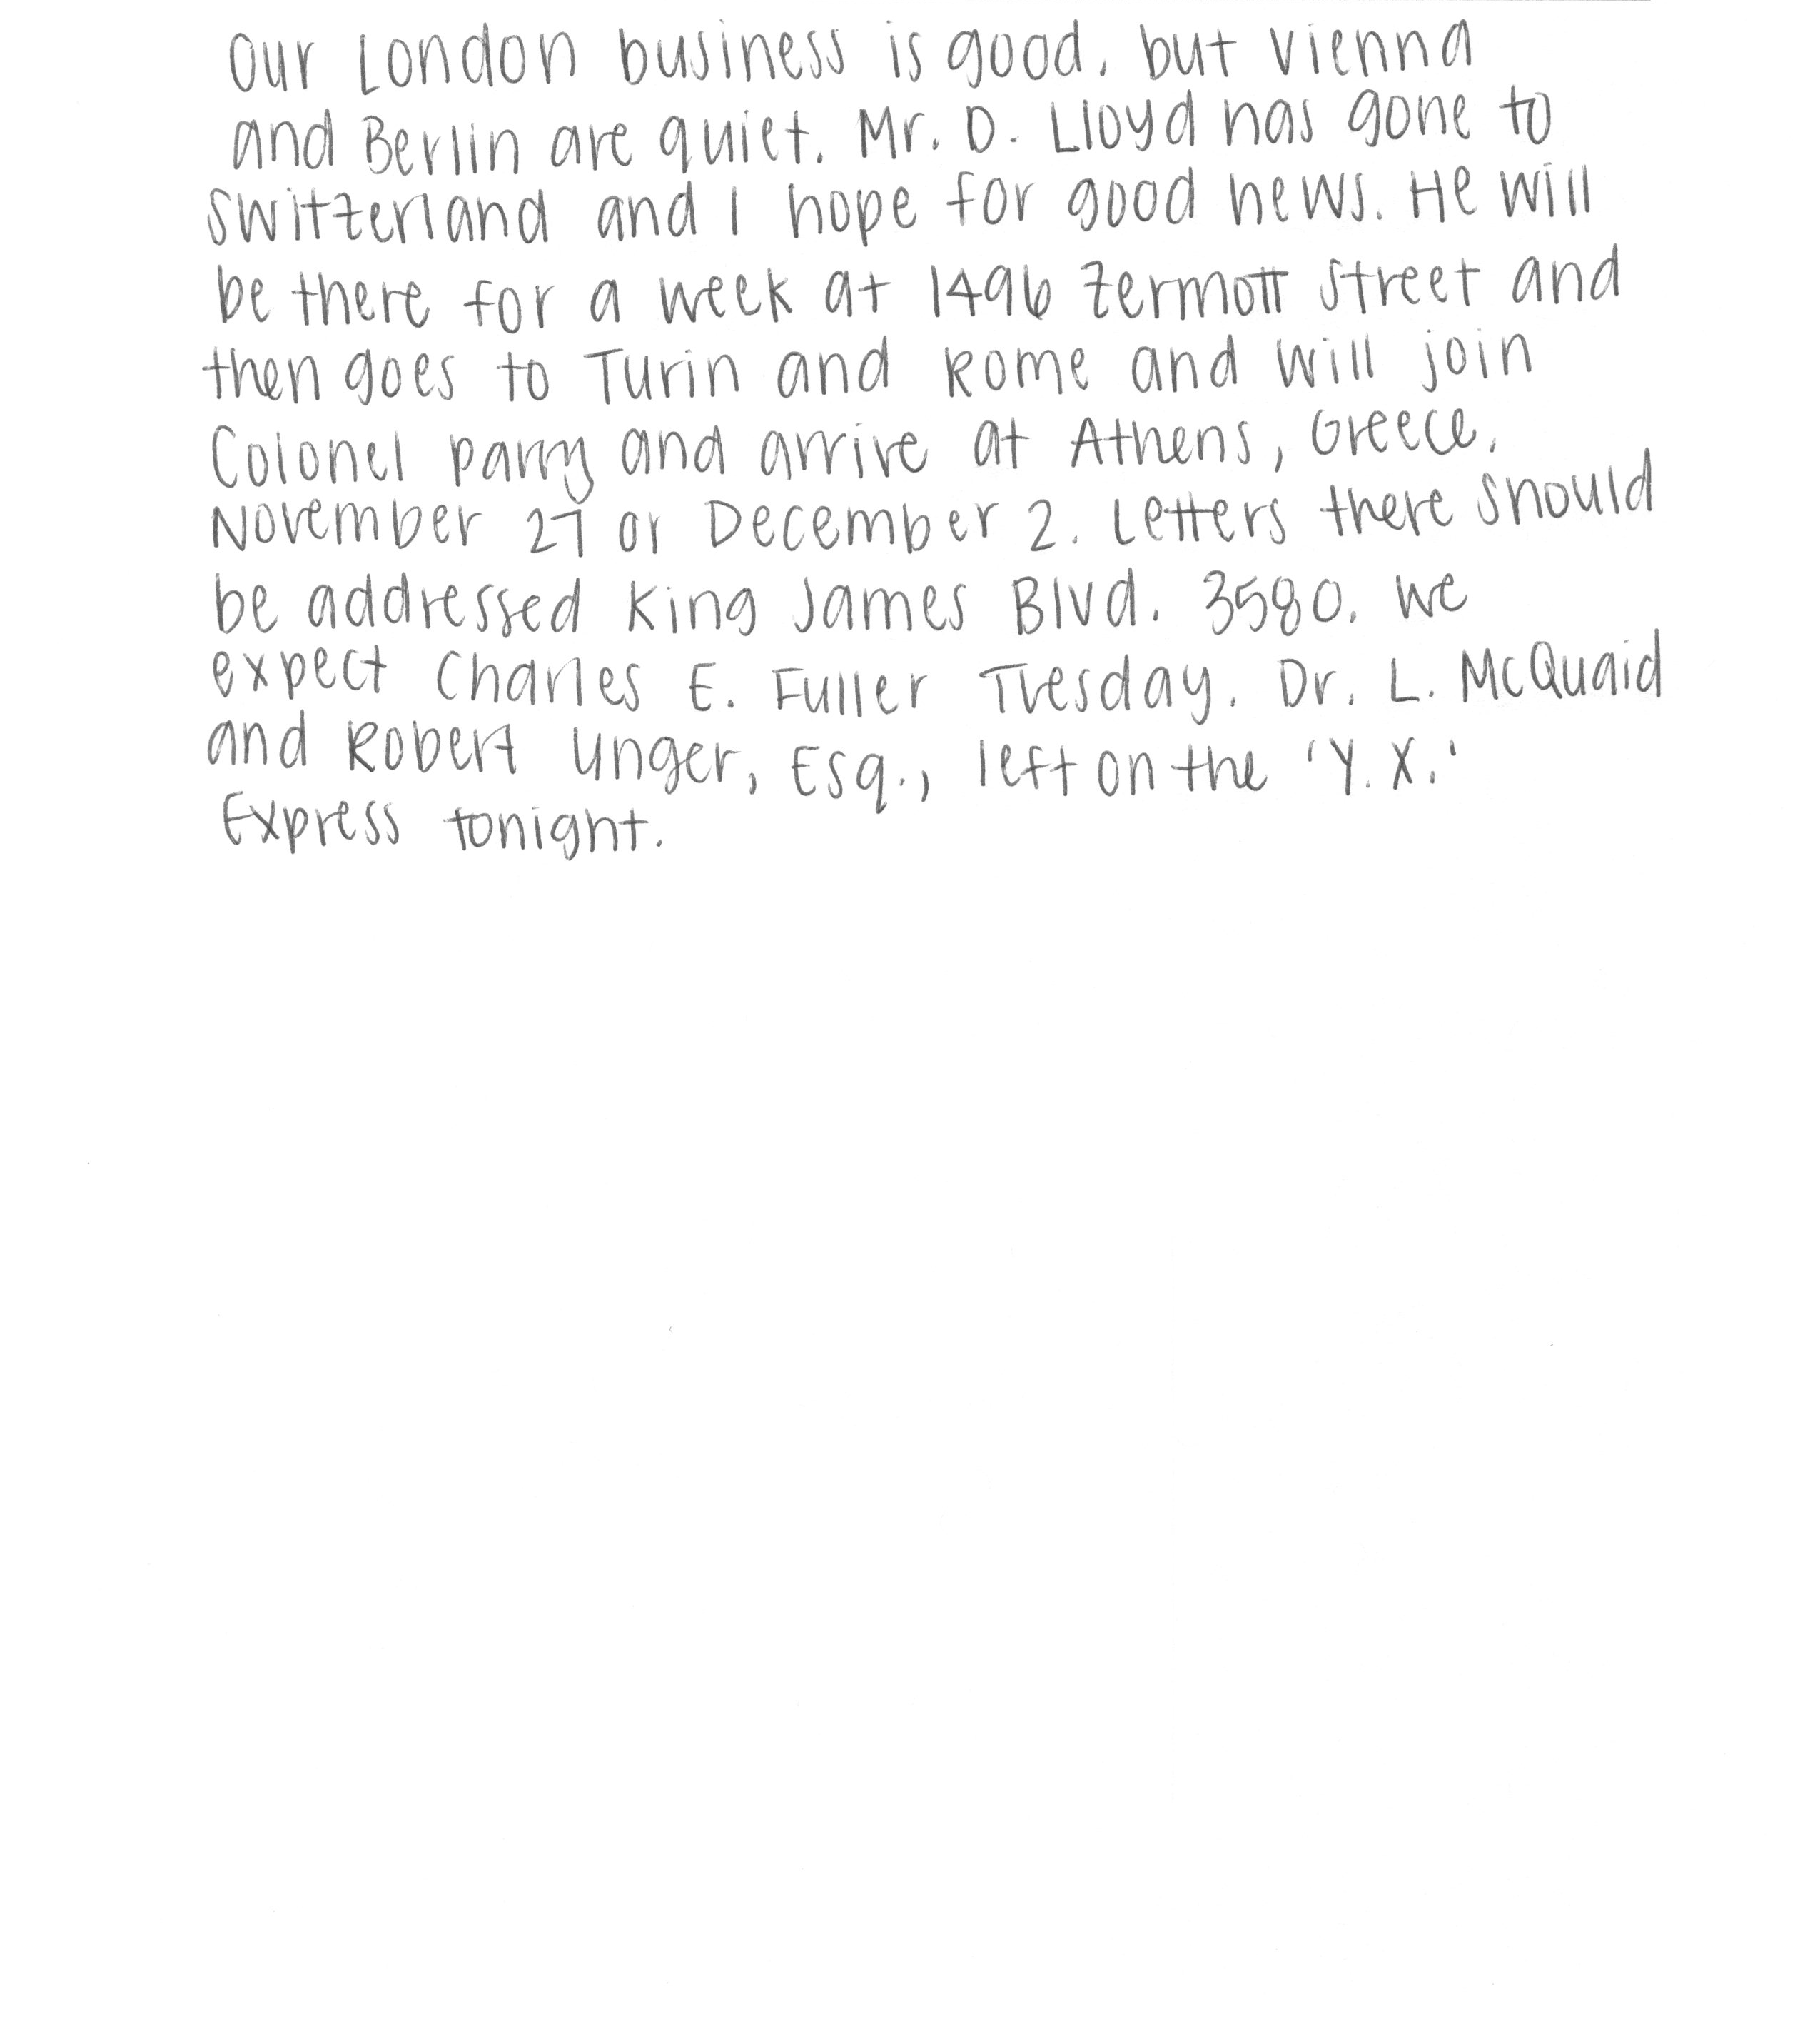 Our London business is good, but Vienna
and Berlin are quiet. Mr. D. Lloyd has gone to
Switzerland and I hope for good news. He will
be there for a week at 1496 Zermott Street and
then goes to Turin and Rome and will join
Colonel Parry and arrive at Athens, Greece,
November 27 or December 2. Letters there should
be addressed King James Blvd. 3580. We
expect Charles E. Fuller Tuesday. Dr. L. McQuaid
and Robert Unger, Esq., left on the 'Y.X.'
Express tonight.